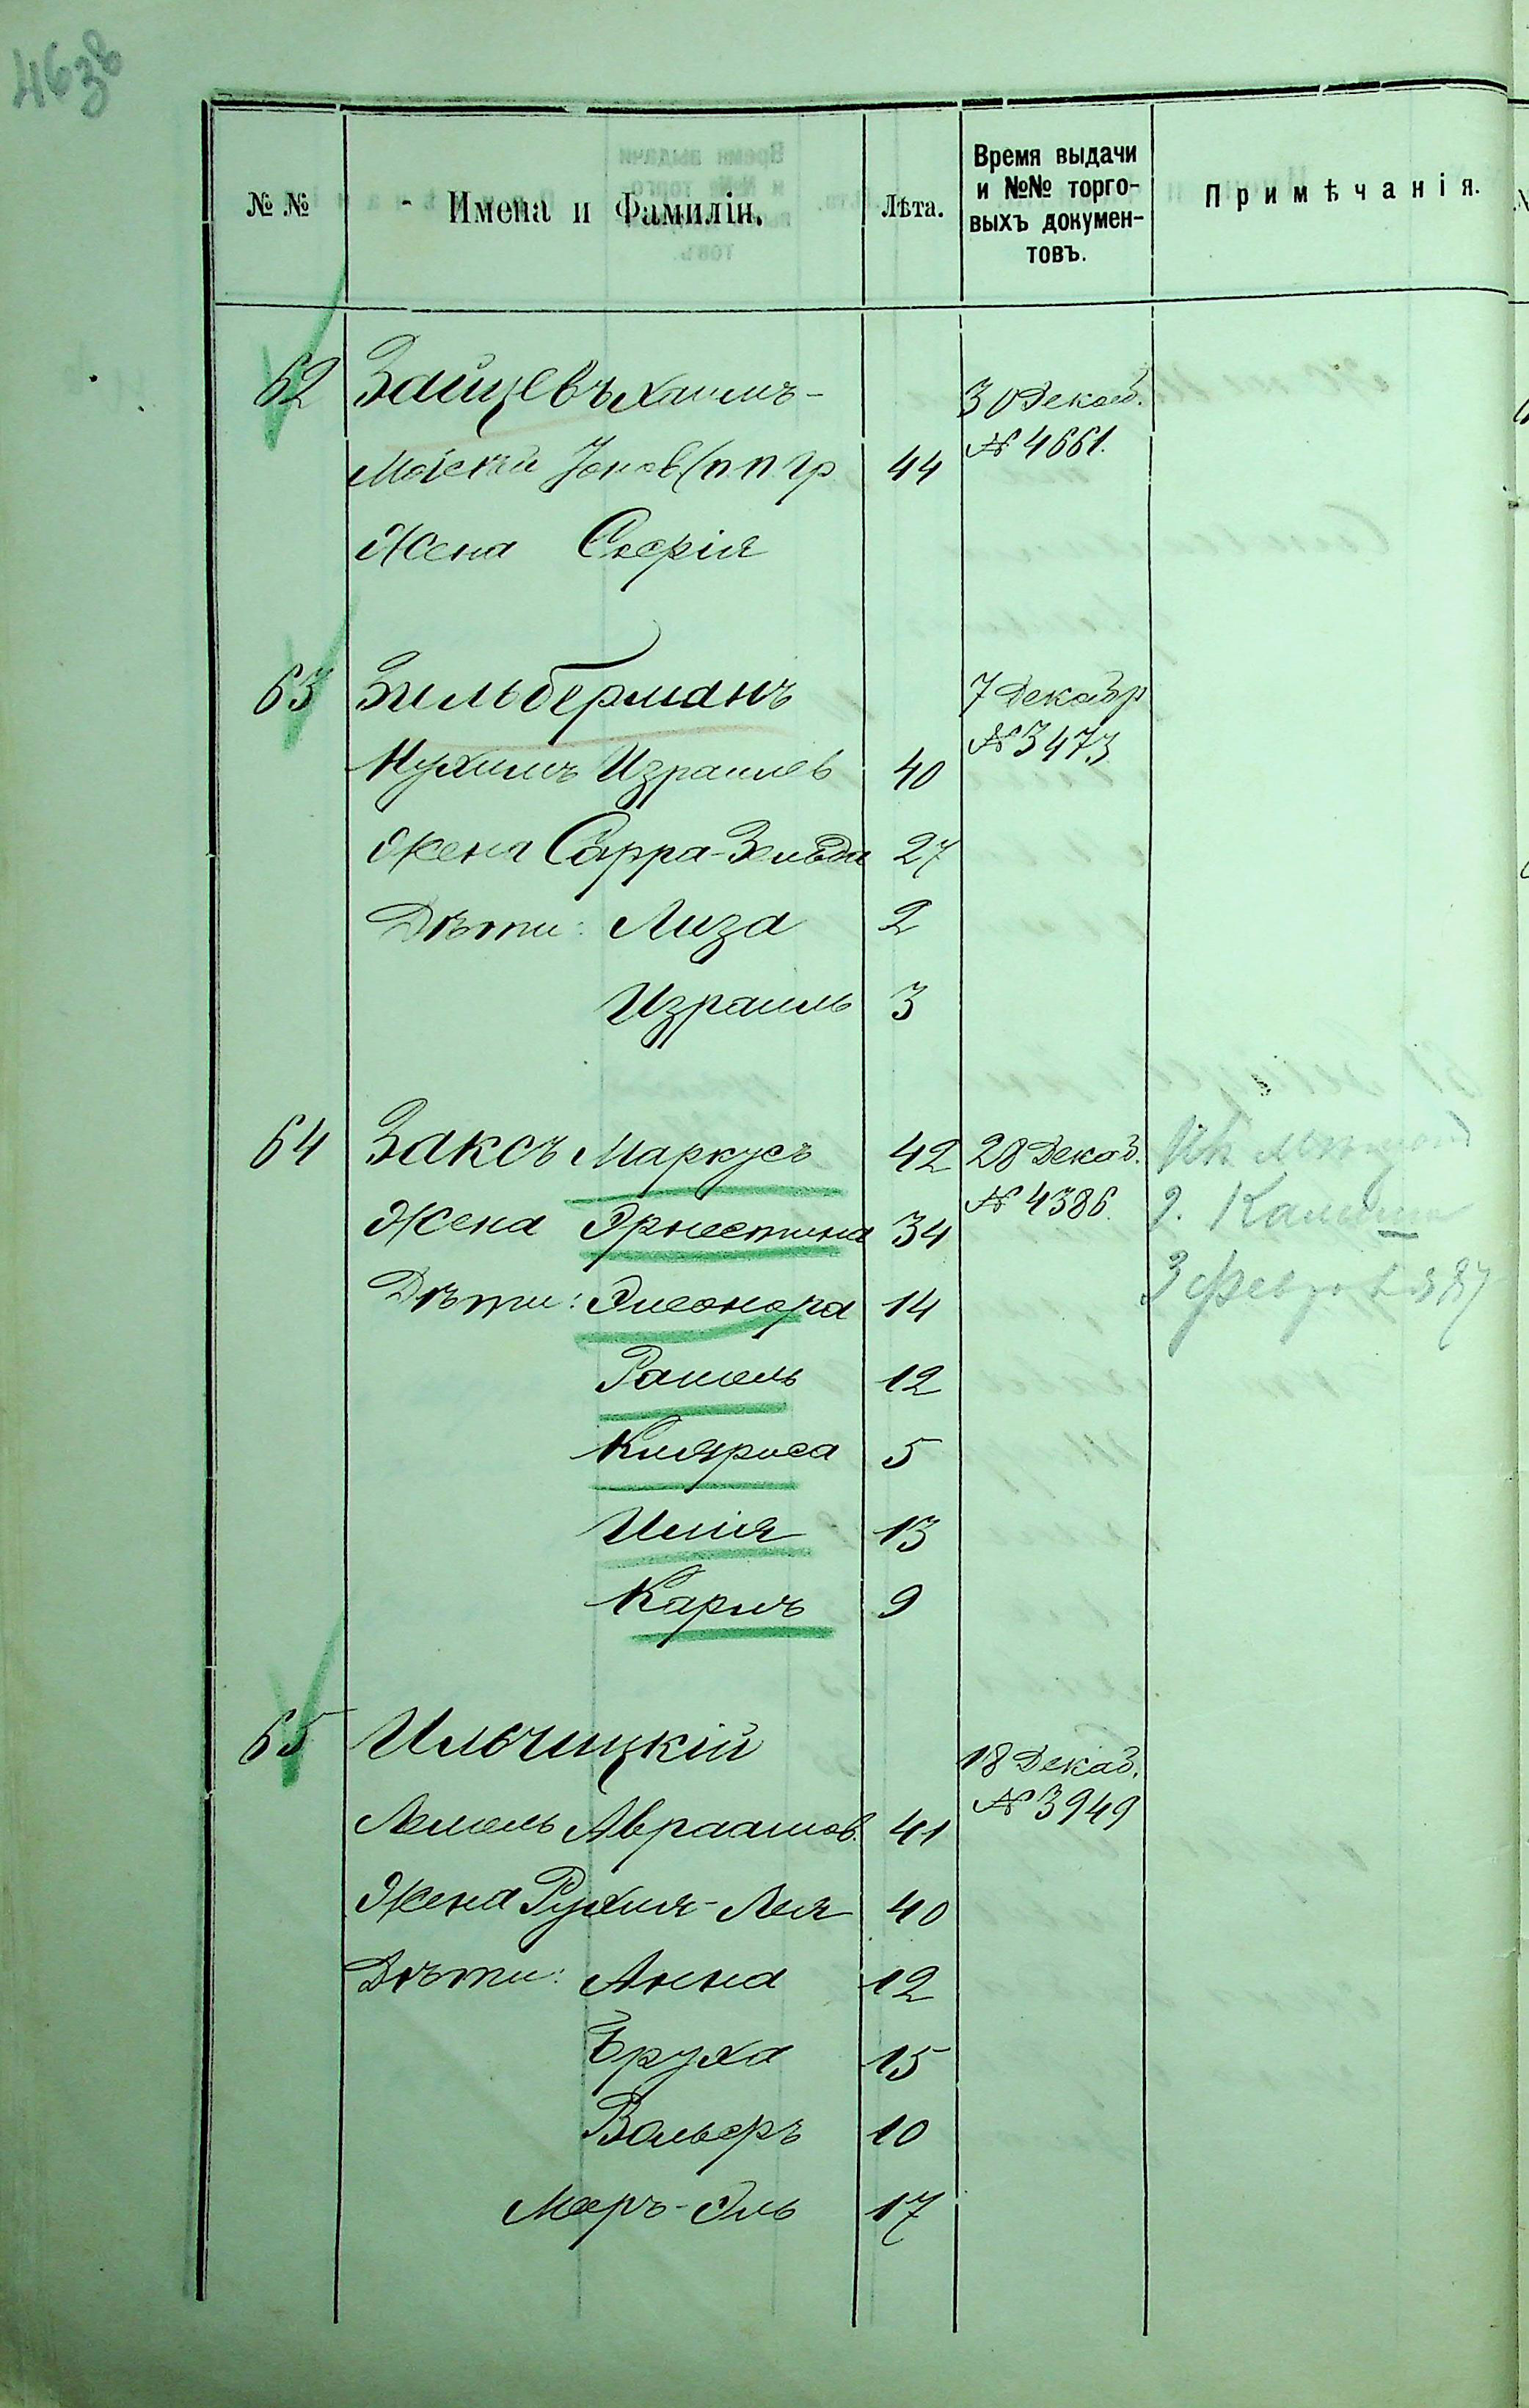 46зв
№ №
Имена и Фамиліи.
Лѣта.
Время выдачи
и №№ торго-
выхъ докумен-
товъ.
Примѣчанія.
62 Зайцевъ Хаимъ- 30 Декаб.
№ 4661.
Моісей (п.п.гр 44
Жена Софія
63 Зильберманъ 7 Декабр
№ 3473
Нухимъ Израилев 40
Жена Сарра-Зельда 27
Дѣти: Лиза 2
Израиль 3
64 Заксъ Маркусъ 42 28 Декаб.
№ 4386.
Жена Эрнестина 34
Дѣти: Элеонора 14
3 Февр 1887
Рашель 12
Кляриса 5
Илія 13
Карлъ 9
65 Ильчицкій 18 Декаб.
№ 3949
Лемель Авраамов. 41
Жена Рухля-Лея 40
Дѣти: Анна 12
Бруха 15
Вольфъ 10
Меръ-Эль 17